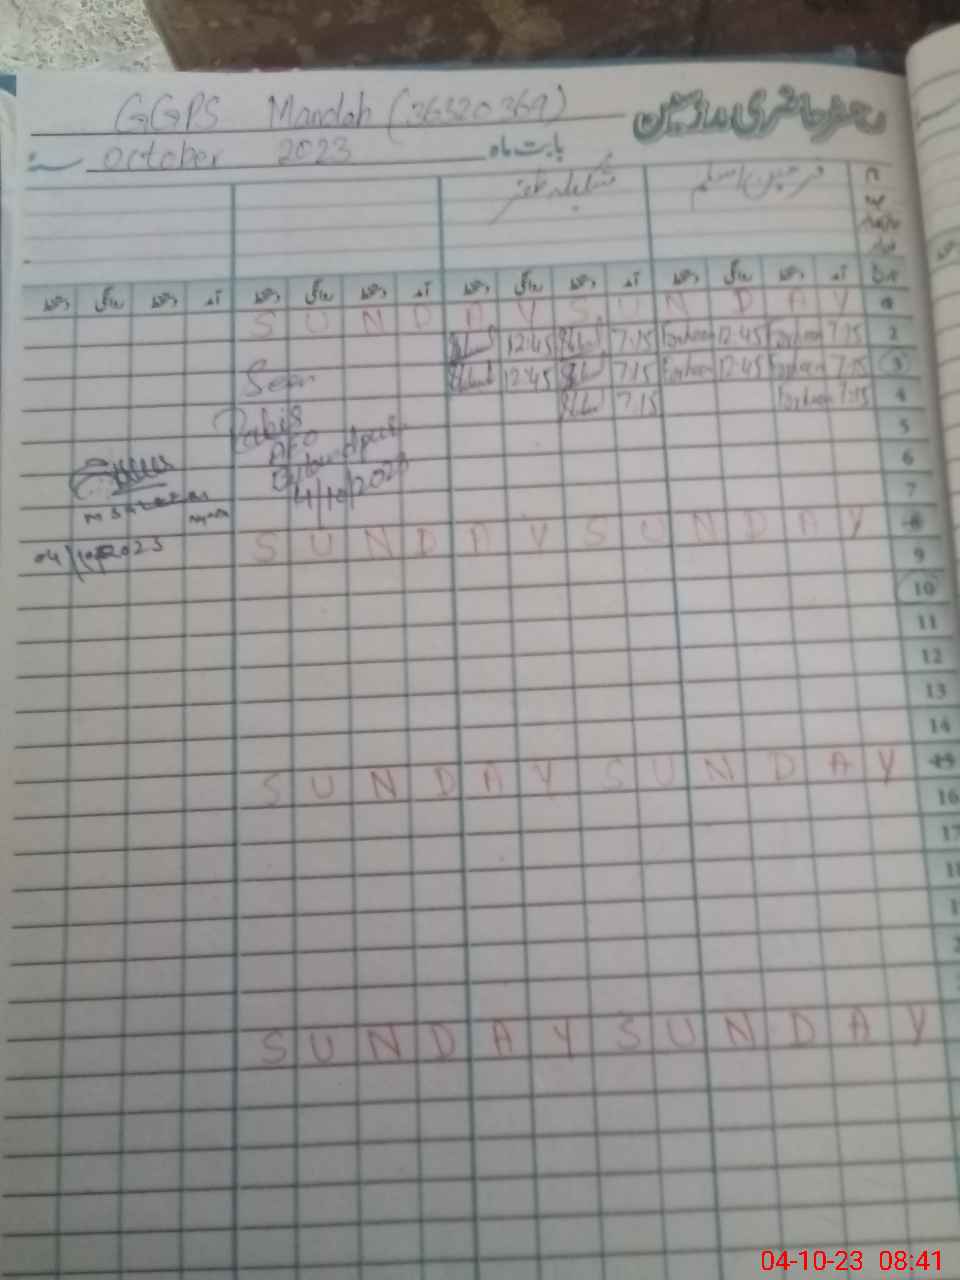 GGPS Mandah (36320369)
رجسٹر حاضری مدرسین
October 2023 بابت ماہ سنہ
فرحین اسلم شکیلہ
آمد دستخط روانگی دستخط آمد دستخط روانگی دستخط آمد دستخط روانگی دستخط آمد دستخط روانگی دستخط
SUNDAY SUNDAY
12:45 7:15 Farheen 12:45 Farheen 7:15 2
Seen 12:45 7:15 Farheen 12:45 Farheen 7:15 3
7:15 Farheen 7:15 4
5
AEO
6
4/10/2023 7
SUNDAY SUNDAY 8
04/10/2023 9
10
11
12
13
14
SUNDAY SUNDAY 15
16
17
SUNDAY SUNDAY
04-10-23 08:41